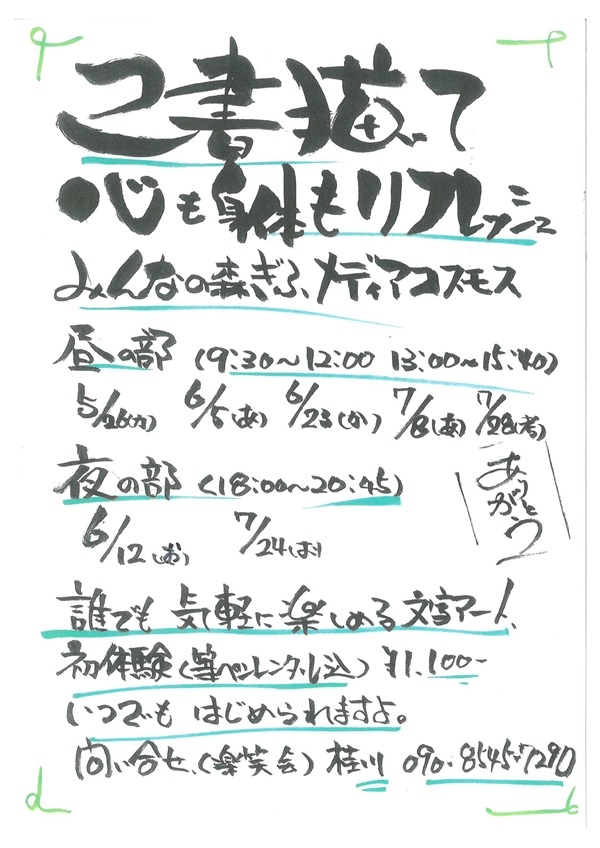 己書描いて
心も身体もリフレッシュ
みんなの森ぎふメディアコスモス
昼の部 (9:30〜12:00 13:00〜15:40)
5/26(カ) 6/5(あ) 6/23(か) 7/8(あ) 7/28(考)
夜の部 (18:00〜20:45)
6/12(お) 7/24(お)
ありがとう
誰でも気軽に楽しめる文字アート、
初体験(筆ペンレンタル込) ¥1,100-
いつでもはじめられますよ。
問い合せ、(楽笑会) 桂川 090-8545-7290